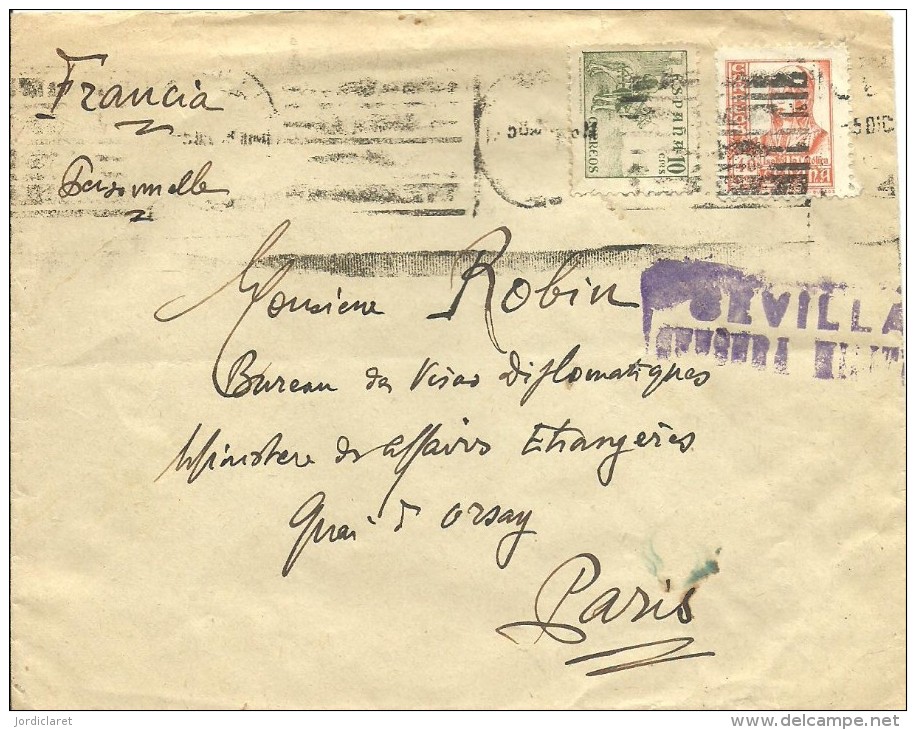 Francia
Personnelle
ESPAÑA
10
CTMS
CORREOS
5 DIC
Monsieur Robin
Bureau des Visas Diplomatiques
Ministere des affaires Etrangères
Quai d'orsay
Paris
SEVILLA
CENSURA MILITA
jordiclaret
www.delcampe.net